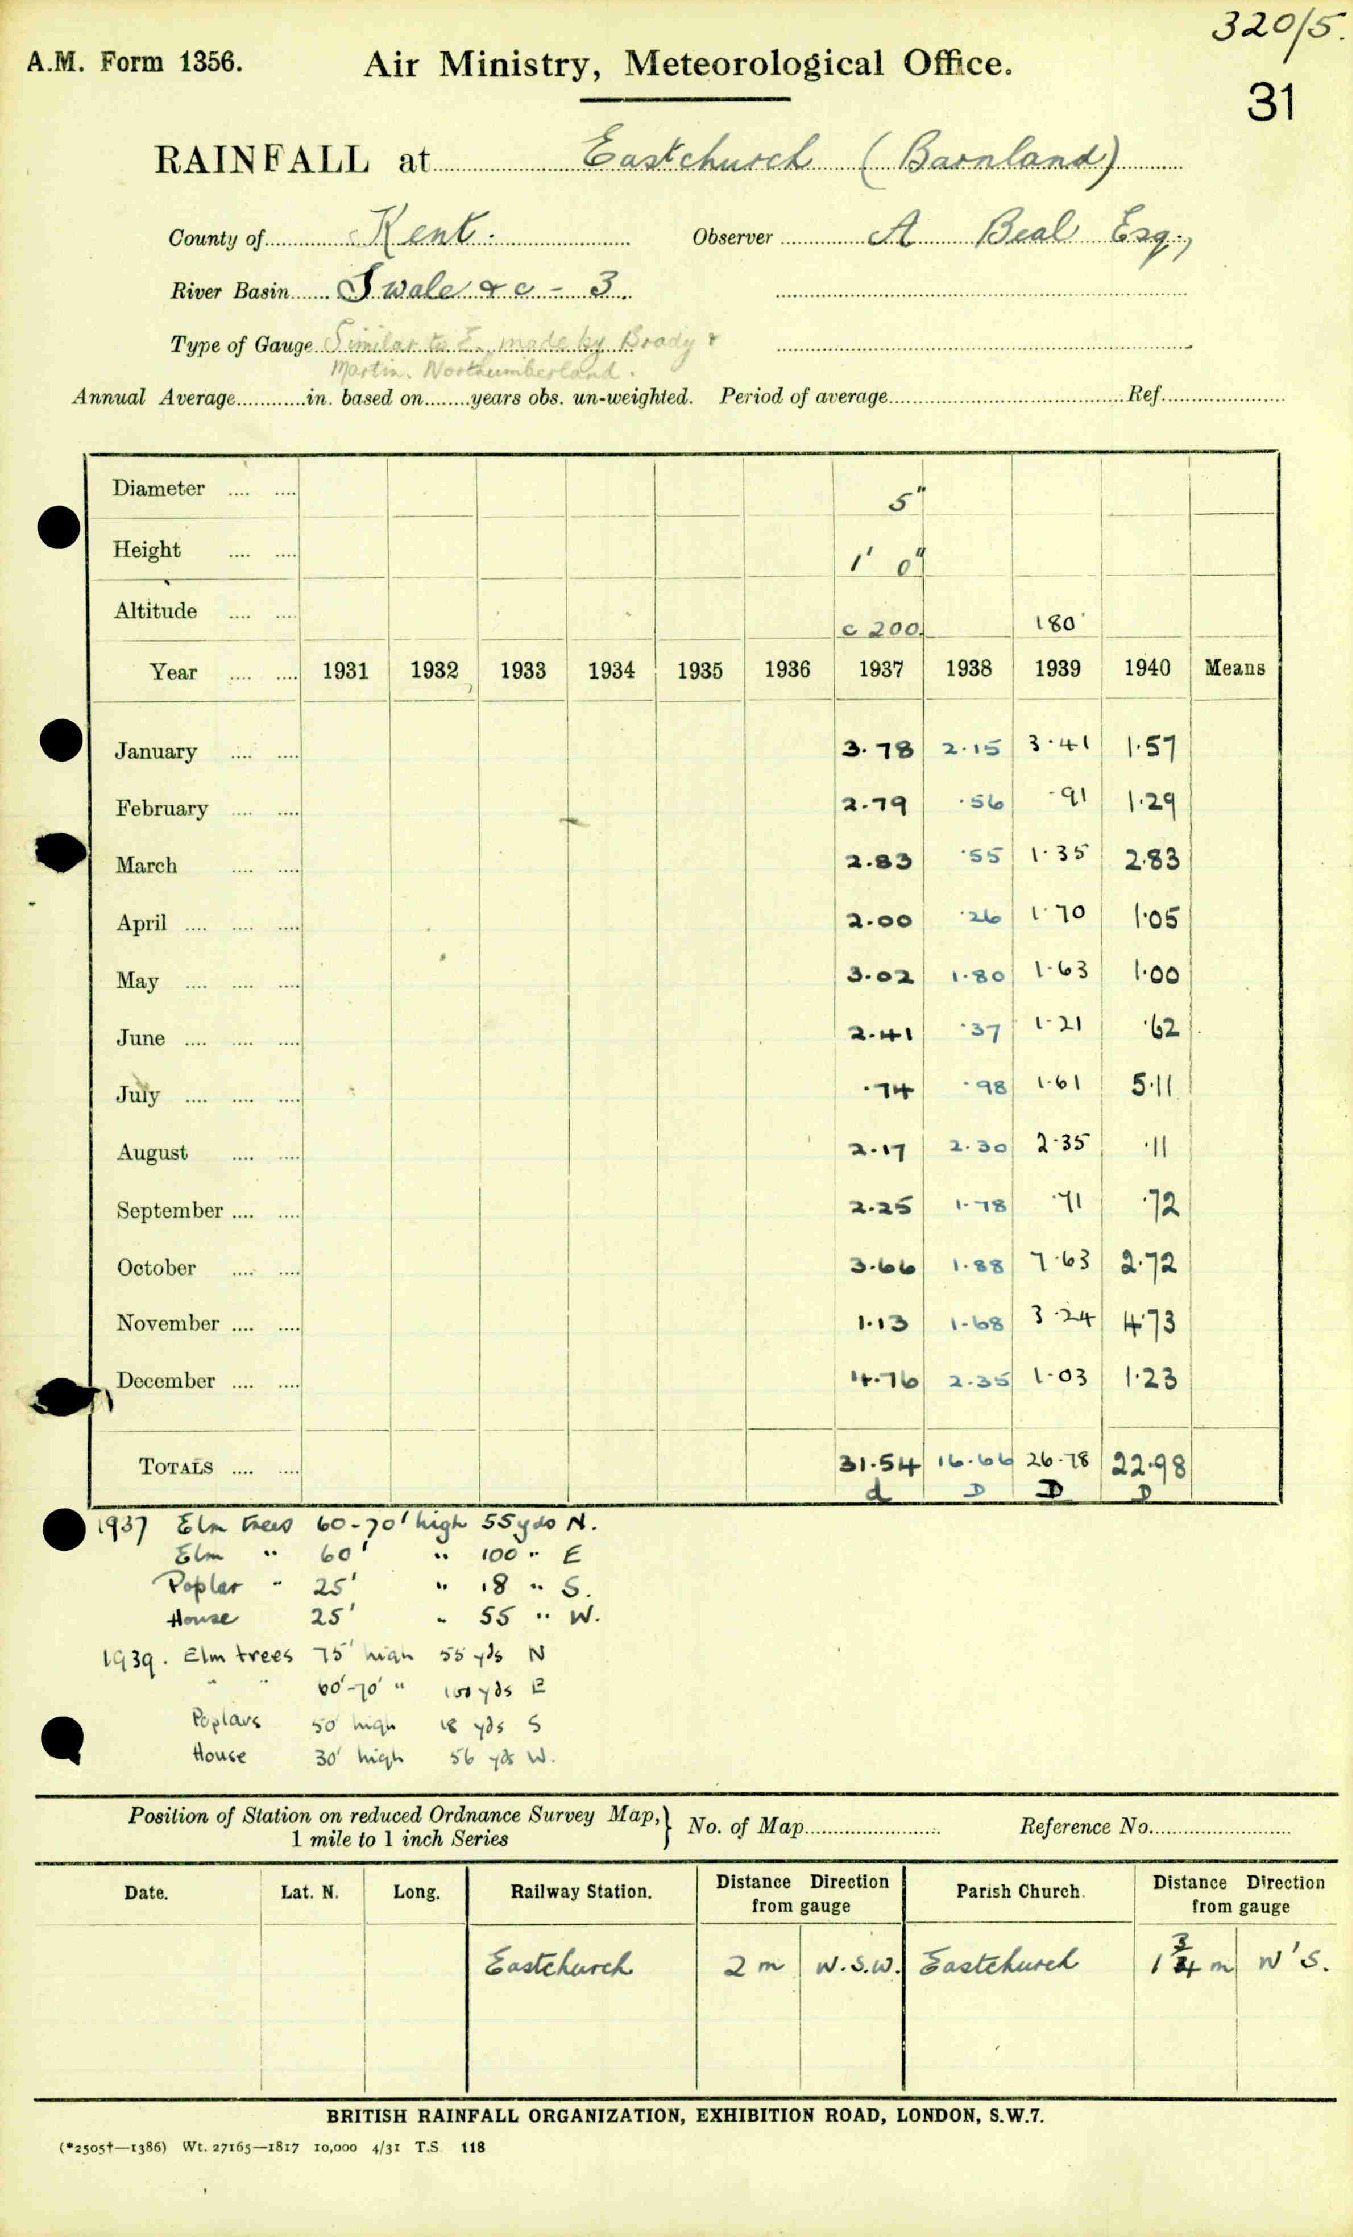 320/5.
A.M. Form 1356. Air Ministry, Meteorological Office.
31
RAINFALL at Eastchurch (Barnland)
County of Kent. Observer A Beal Esq.,
River Basin Swale & c - 3.
Type of Gauge Similar to S. made by Brady &
Martin. Northumberland.
Annual Average............in. based on........years obs. un-weighted. Period of average........ Ref.........
Diameter .... .... 5"
Height .... .... 1' 0"
Altitude .... .... c 200 180'
Year .... .... 1931 1932 1933 1934 1935 1936 1937 1938 1939 1940 Means
January .... .... 3.78 2.15 3.41 1.57
February .... .... 2.79 .56 .91 1.29
March .... .... 2.83 .55 1.35 2.83
April .... .... .... 2.00 .26 1.70 1.05
May .... .... .... 3.02 1.80 1.63 1.00
June .... .... .... 2.41 .37 1.21 .62
July .... .... .... .74 .98 1.61 5.11
August .... .... 2.17 2.30 2.35 .11
September .... .... 2.25 1.78 .71 .72
October .... .... 3.66 1.88 7.63 2.72
November .... .... 1.13 1.68 3.24 4.73
December .... .... 4.76 2.35 1.03 1.23
TOTALS .... .... 31.54 16.66 26.78 22.98
d D D D
1937 Elm trees 60-70' high 55 yds N.
Elm " 60' " 100 " E
Poplar " 25' " 18 " S.
House 25' " 55 " W.
1939. Elm trees 75' high 55 yds N
" " 60'-70' " 100 yds E
Poplars 50' high 18 yds S
House 30' high 56 yds W.
Position of Station on reduced Ordnance Survey Map, } No. of Map........ Reference No.........
1 mile to 1 inch Series
Date. Lat. N. Long. Railway Station. Distance Direction from gauge Parish Church. Distance Direction from gauge
Eastchurch 2 m W.S.W. Eastchurch 1 3/4 m W'S.
BRITISH RAINFALL ORGANIZATION, EXHIBITION ROAD, LONDON, S.W.7.
(*2505†—1386) Wt. 27165—1817 10,000 4/31 T.S. 118